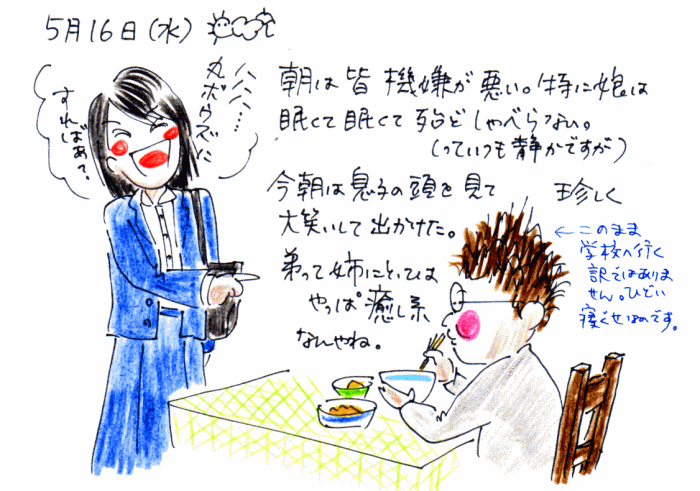 5月16日(水)
ハハハハ…
丸ボウズに
すればぁ?。
朝は皆 機嫌が悪い。特に娘は
眠くて眠くて殆どしゃべらない。
(っていつも静かですが)
今朝は息子の頭を見て 珍しく
大笑いして出かけた。
弟って姉にとっては
やっぱ癒し系
なんやね。
←このまま
学校へ行く
訳ではありま
せん。ひどい
寝ぐせなのです。